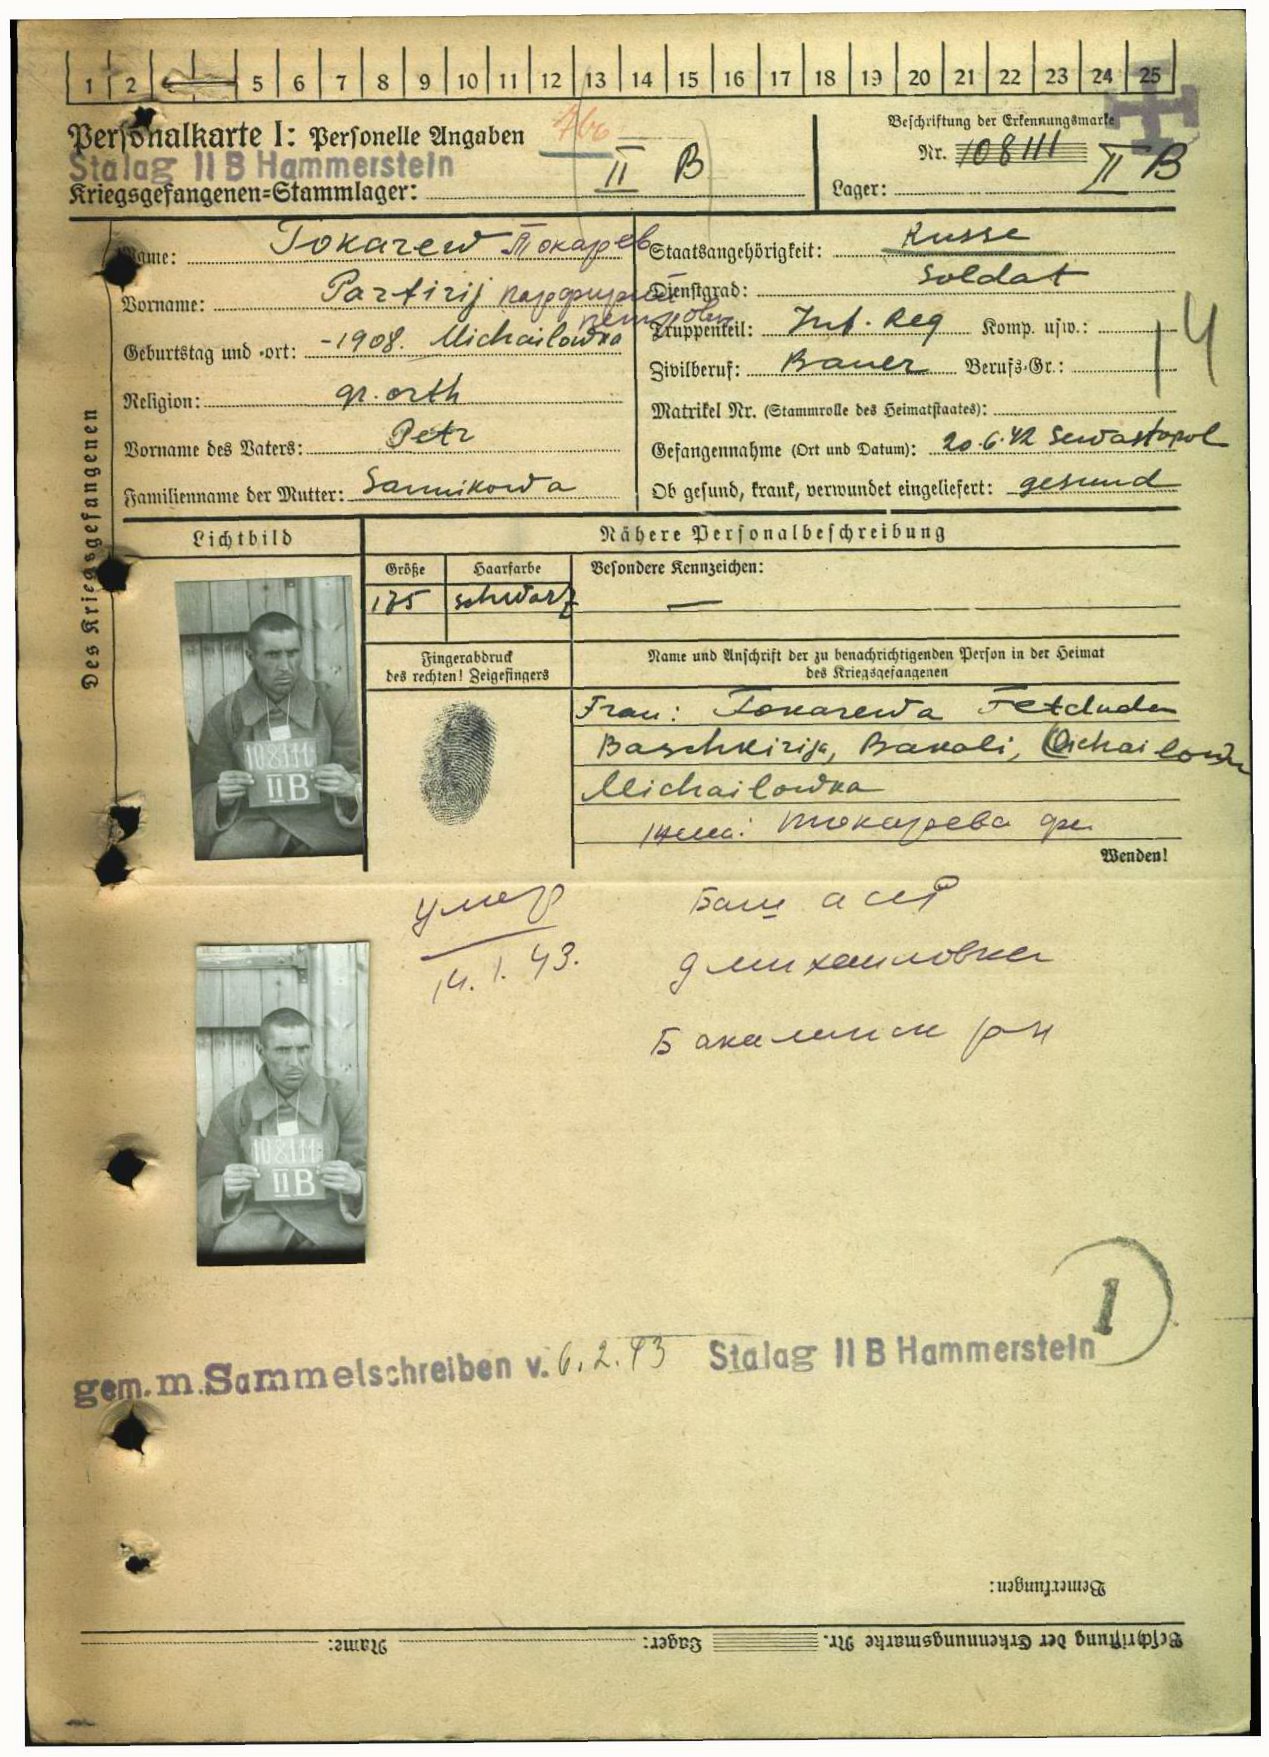 1 2 5 6 7 8 9 10 11 12 13 14 15 16 17 18 19 20 21 22 23 24 25
Personalkarte I: Personelle Angaben
Stalag II B Hammerstein
Kriegsgefangenen-Stammlager: II B
Beschriftung der Erkennungsmarke
Nr. 108111
Lager: II B
Des Kriegsgefangenen
Name: Tokarew Токарев
Vorname: Parfirij
Geburtstag und -ort: -1908. Michailowka
Religion: gr. orth
Vorname des Vaters: Petr
Familienname der Mutter: Sannikowa
Staatsangehörigkeit: Russe
Dienstgrad: Soldat
Truppenteil: Inf. Reg Komp. usw.:
Zivilberuf: Bauer Berufs-Gr.:
14
Matrikel Nr. (Stammrolle des Heimatstaates):
Gefangennahme (Ort und Datum): 20.6.42 Sewastopol
Ob gesund, krank, verwundet eingeliefert: gesund
Lichtbild
Nähere Personalbeschreibung
Größe Haarfarbe Besondere Kennzeichen:
175 schwarz —
Fingerabdruck
des rechten! Zeigefingers
Name und Anschrift der zu benachrichtigenden Person in der Heimat
des Kriegsgefangenen
Frau: Tokarewa
Baschkirija, Bakali,
Michailowka
жена: Токарева
Wenden!
108111
II B
умер
14.1.43.
Баш
д михаиловка
Бакалинск р-н
108111
II B
1
gem. m. Sammelschreiben v. 6.2.43 Stalag II B Hammerstein
Bemerkungen:
Beschriftung der Erkennungsmarke Nr. Lager: Name: